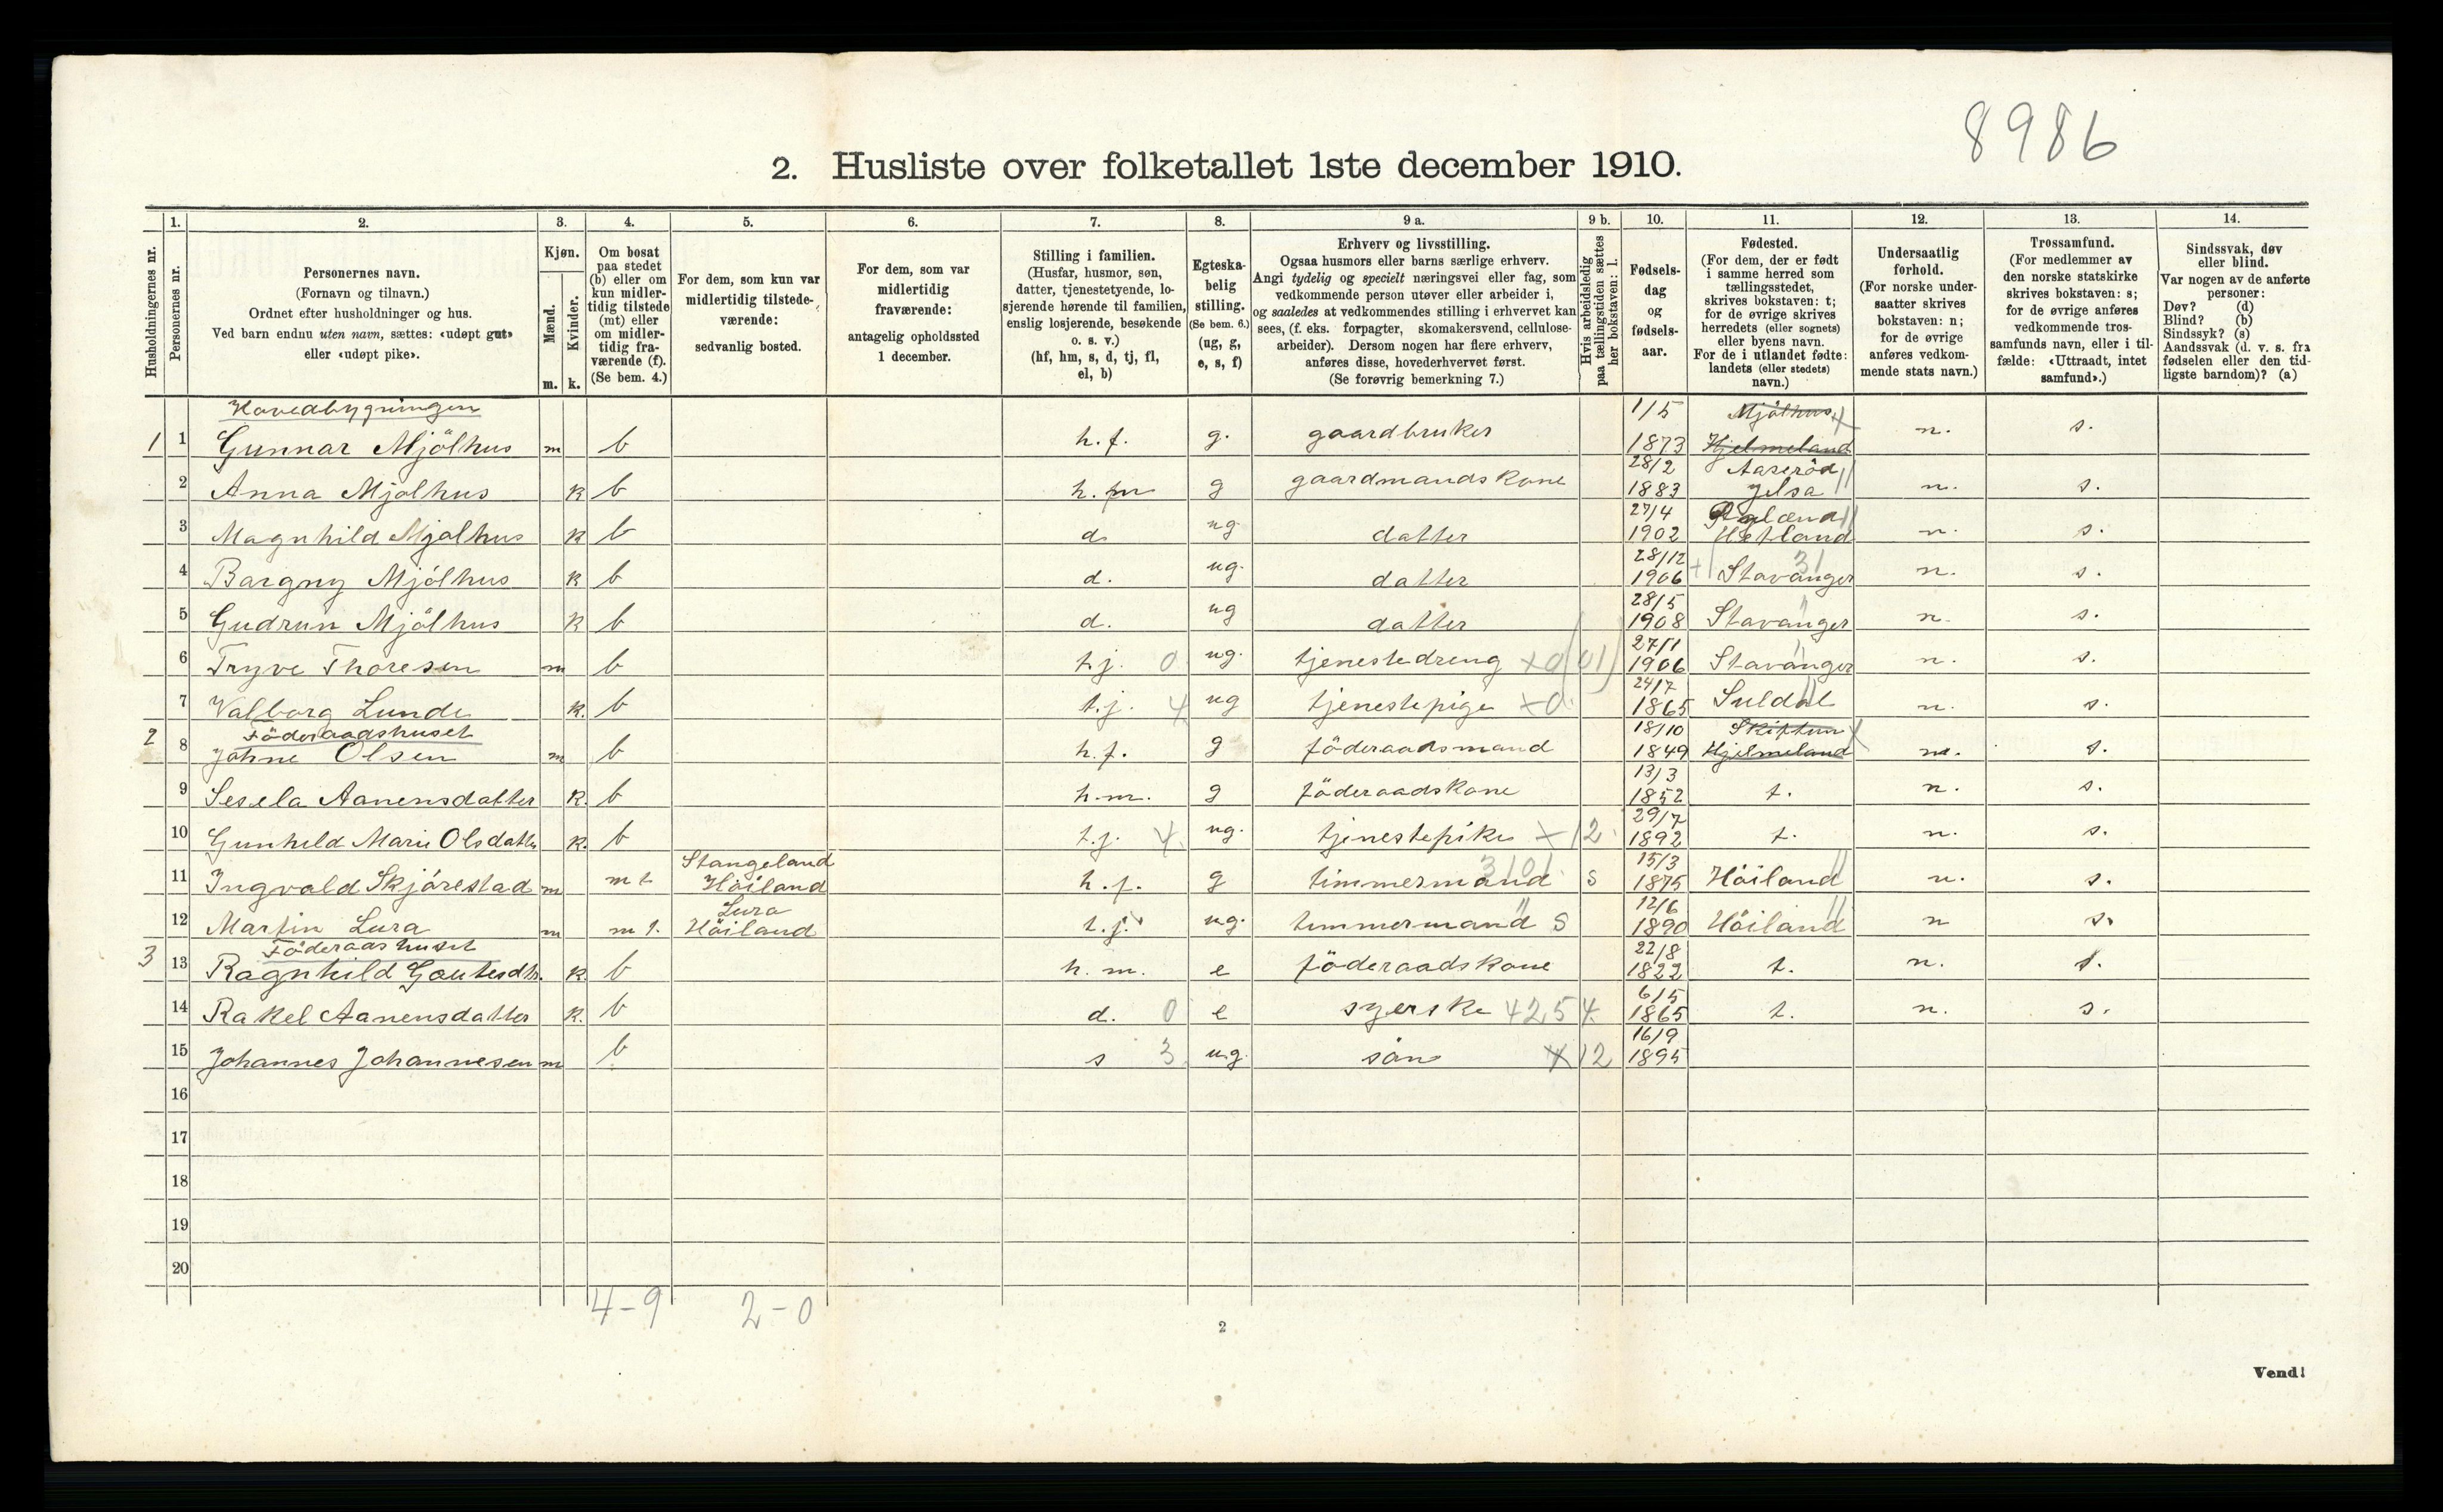 8986
2. Husliste over folketallet 1ste december 1910.
Husholdningernes nr.
1. Personernes nr.
2. Personernes navn.
(Fornavn og tilnavn.)
Ordnet efter husholdninger og hus.
Ved barn endnu uten navn, sættes: «udøpt gut»
eller «udøpt pike».
3. Kjøn.
Mænd. m.
Kvinder. k.
4. Om bosat
paa stedet
(b) eller om
kun midler-
tidig tilstede
(mt) eller
om midler-
tidig fra-
værende (f).
(Se bem. 4.)
5. For dem, som kun var
midlertidig tilstede-
værende:
sedvanlig bosted.
6. For dem, som var
midlertidig
fraværende:
antagelig opholdssted
1 december.
7. Stilling i familien.
(Husfar, husmor, søn,
datter, tjenestetyende, lo-
sjerende hørende til familien,
enslig losjerende, besøkende
o. s. v.)
(hf, hm, s, d, tj, fl,
el, b)
8. Egteska-
belig
stilling.
(Se bem. 6.)
(ug, g,
e, s, f)
9 a. Erhverv og livsstilling.
Ogsaa husmors eller barns særlige erhverv.
Angi tydelig og specielt næringsvei eller fag, som
vedkommende person utøver eller arbeider i,
og saaledes at vedkommendes stilling i erhvervet kan
sees, (f. eks. forpagter, skomakersvend, cellulose-
arbeider). Dersom nogen har flere erhverv,
anføres disse, hovederhvervet først.
(Se forøvrig bemerkning 7.)
9 b. Hvis arbeidsledig
paa tællingstiden sættes
her bokstaven: l.
10. Fødsels-
dag
og
fødsels-
aar.
11. Fødested.
(For dem, der er født
i samme herred som
tællingsstedet,
skrives bokstaven: t;
for de øvrige skrives
herredets (eller sognets)
eller byens navn.
For de i utlandet fødte:
landets (eller stedets)
navn.)
12. Undersaatlig
forhold.
(For norske under-
saatter skrives
bokstaven: n;
for de øvrige
anføres vedkom-
mende stats navn.)
13. Trossamfund.
(For medlemmer av
den norske statskirke
skrives bokstaven: s;
for de øvrige anføres
vedkommende tros-
samfunds navn, eller i til-
fælde: «Uttraadt, intet
samfund».)
14. Sindssvak, døv
eller blind.
Var nogen av de anførte
personer:
Døv? (d)
Blind? (b)
Sindssyk? (s)
Aandssvak (d. v. s. fra
fødselen eller den tid-
ligste barndom)? (a)
Hovedbygningen
1 1 Gunnar Mjölhus m b h.f. g. gaardbruker 1/5 1873 Mjölhus Hjelmeland n. s.
2 Anna Mjölhus k b h.m g gaardmandskone 28/2 1883 Aaseröd Jelsa n. s.
3 Magnhild Mjölhus k b d ug datter 27/4 1902 Hetland n. s.
4 Bargny Mjölhus k b d. ug. datter 28/12 1906 Stavanger 31 n. s.
5 Gudrun Mjölhus k b d. ug datter 28/5 1908 Stavanger n. s.
6 Tryve Thoresen m b t.j. 0 ug. tjenestedreng x0 (01) 27/1 1906 Stavanger n. s.
7 Valborg Lunde k. b t.j. 4 ug tjenestepige x0 24/7 1865 Suldal n. s.
Föderaadshuset
2 8 Johne Olsen m b h.f. g föderaadsmand 18/10 1849 Skiftun Hjelmeland n. s.
9 Sesela Aanensdatter k. b h.m. g föderaadskone 13/3 1852 t. n. s.
10 Gunhild Marie Olsdattr k. b t.j. 4 ug. tjenestepike x 12 29/7 1892 t. n. s.
11 Ingvald Skjörestad m mt Stangeland Höiland h.f. g timmermand 3101 s 15/3 1875 Höiland n. s.
12 Martin Lura m mt. Lura Höiland t.j. ug. timmermand " s 12/6 1890 Höiland n s.
Föderaadshuset
3 13 Ragnhild Gautesdtr. k b h.m. e föderaadskone 22/8 1822 t. n. s.
14 Rakel Aanensdatter k. b d. 0 e syerske 4254 6/5 1865 t. n. s.
15 Johannes Johannesen m b s 3 ug. sön x 12 16/9 1895
16
17
18
19
20
4-9 2-0
2
Vend!